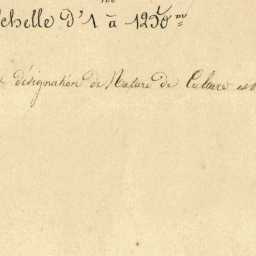 chelle d'1 à 1250 me
désignation de Nature de Culture est